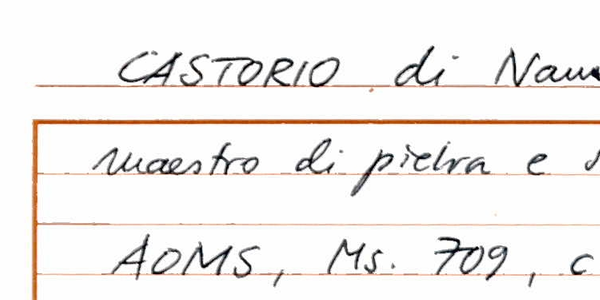 CASTORIO di
maestro di pietra e
AOMS, Ms. 709, c